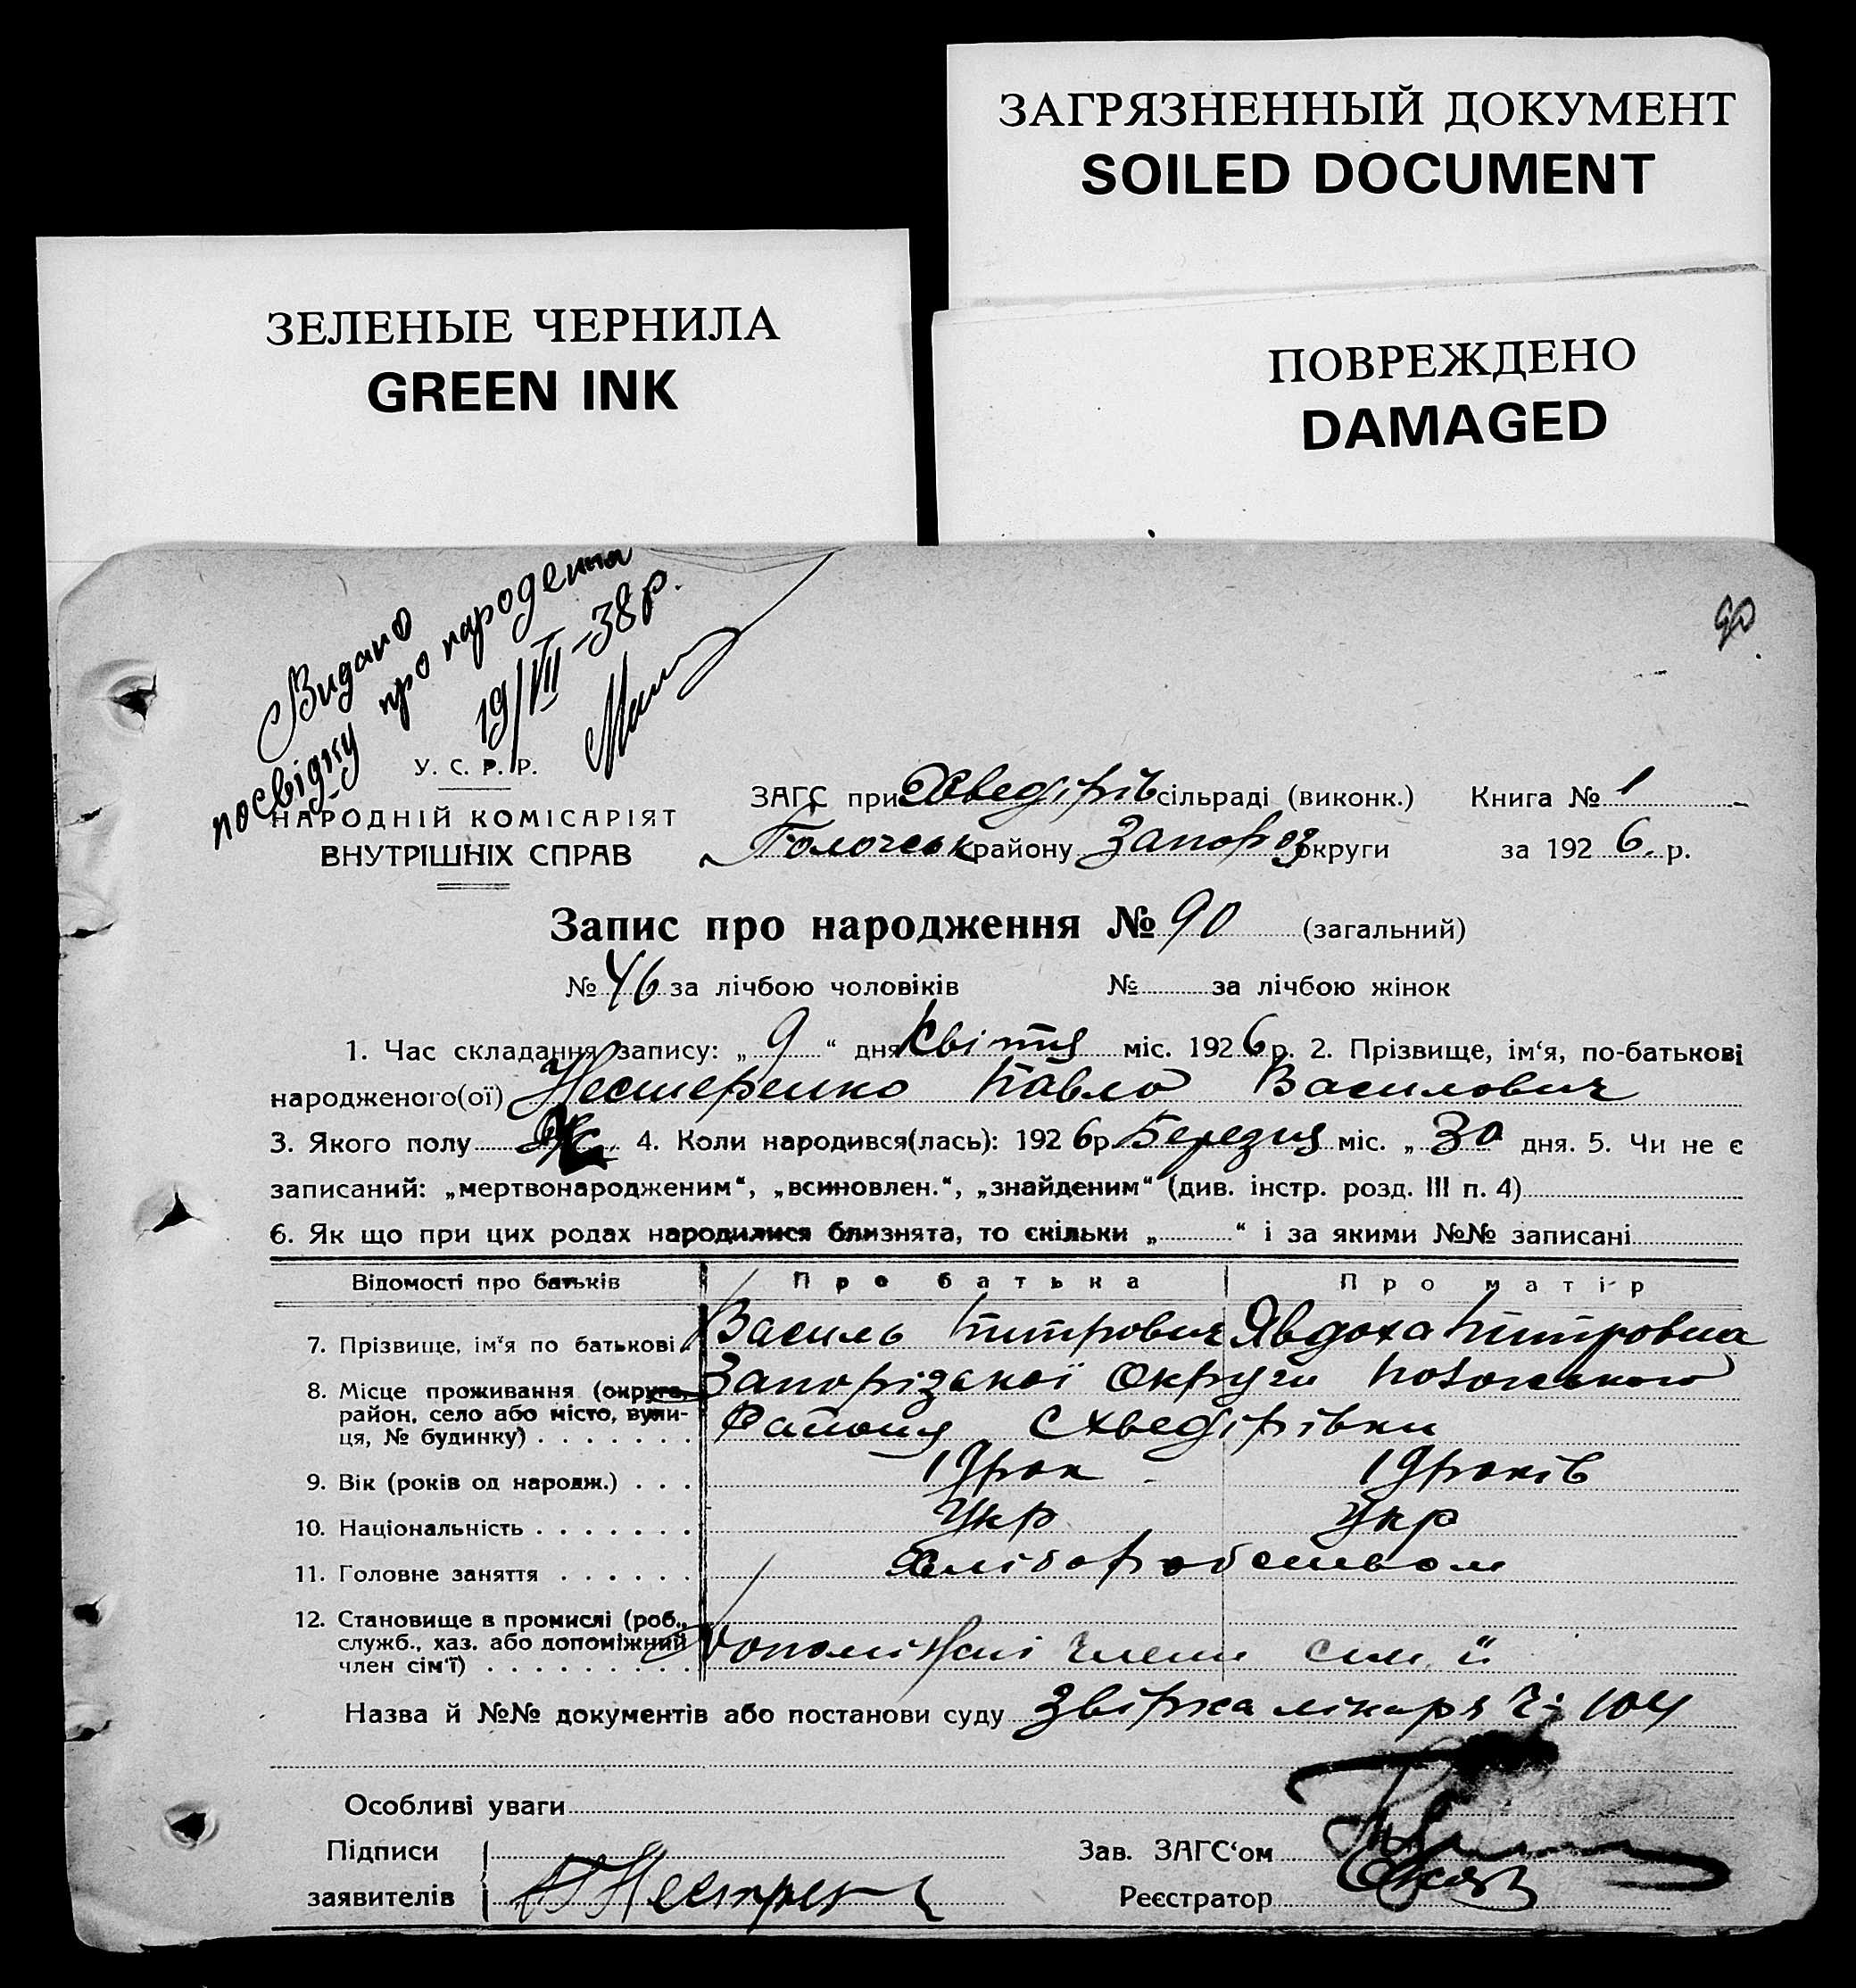 ЗАГРЯЗНЕННЫЙ ДОКУМЕНТ
SOILED DOCUMENT
ЗЕЛЕНЫЕ ЧЕРНИЛА
GREEN INK
ПОВРЕЖДЕНО
DAMAGED
Видано
посвідку про народення
19/VII-38р.
90
У. С. Р. Р.
НАРОДНІЙ КОМІСАРІЯТ
ВНУТРІШНІХ СПРАВ
ЗАГС при Схведірів сільраді (виконк.) Книга № 1
району Запоріз округи за 1926. р.
Запис про народження № 90 (загальний)
№ 46 за лічбою чоловіків № за лічбою жінок
1. Час складання запису: „ 9 “ дня Квітня міс. 1926 р. 2. Прізвище, ім‘я, по-батькові
народженого(ої) Нестеренко Павло Василович
3. Якого полу Ч 4. Коли народився(лась): 1926р. Березня міс. „ 30 дня. 5. Чи не є
записаний: „мертвонародженим“, „всиновлен.“, „знайденим“ (див. інстр. розд. III п. 4)
6. Як що при цих родах народилися близнята, то скільки „ “ і за якими №№ записані
Відомості про батьків Про батька Про матір
7. Прізвище, ім‘я по батькові Василь Питрович Явдоха Питровна
8. Місце проживання (округа, Запорізької Округи
район, село або місто, вули- Району Схведірівки
ця, № будинку)
9. Вік (років од народж.) 19 рок 19 років
10. Національність Укр Укр
11. Головне заняття Хліборобством
12. Становище в промислі (роб.,
служб., хаз. або допоміжний допоміжні члени сим'ї
член сім‘ї)
Назва й №№ документів або постанови суду Звірка лікаря Ч: 104
Особливі уваги
Підписи
заявителів Нестерен
Зав. ЗАГС‘ом
Реєстратор